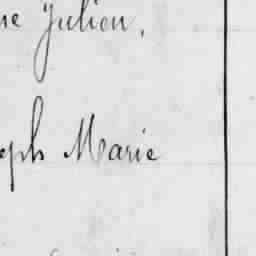 ne Julien,
eph Marie